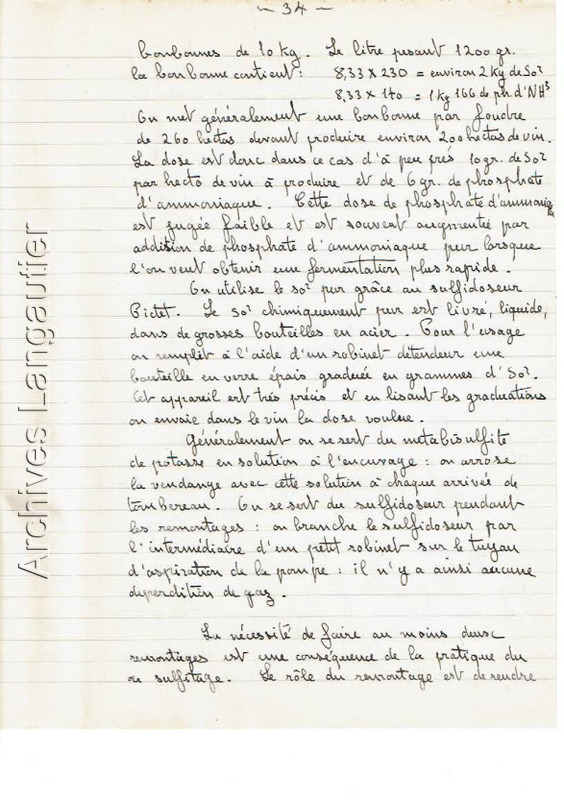 - 34 -
bonbonnes de 10 kg. Le litre pesant 1200 gr.
la bonbonne contient : 8,33 x 230 = environ 2 kg de So²
8,33 x 140 = 1 kg 166 de ph. d'NH³
On met généralement une bonbonne par foudre
de 260 hectos devant produire environ 200 hectos de vin.
La dose est donc dans ce cas d'à peu près 10 gr. de So²
par hecto de vin à produire et de 6 gr. de phosphate
d'ammoniaque. Cette dose de phosphate d'ammoniaque
est jugée faible et est souvent augmentée par
addition de phosphate d'ammoniaque pur lorsque
l'on veut obtenir une fermentation plus rapide.
On utilise le So² pur grâce au sulfidoseur
Pictet. Le So² chimiquement pur est livré, liquide,
dans de grosses bouteilles en acier. Pour l'usage
on remplit à l'aide d'un robinet détendeur une
bouteille en verre épais graduée en grammes d'So².
Cet appareil est très précis et en lisant les graduations
on envoie dans le vin la dose voulue.
Généralement on se sert du metabisulfite
de potasse en solution à l'encuvage : on arrose
la vendange avec cette solution à chaque arrivée de
tombereau. On se sert du sulfidoseur pendant
les remontages : on branche le sulfidoseur par
l'intermédiaire d'un petit robinet sur le tuyau
d'aspiration de la pompe : il n'y a ainsi aucune
deperdition de gaz.
La nécessité de faire au moins deux
remontages est une conséquence de la pratique du
sulfitage. Le rôle du remontage est de rendre
Archives Langautier